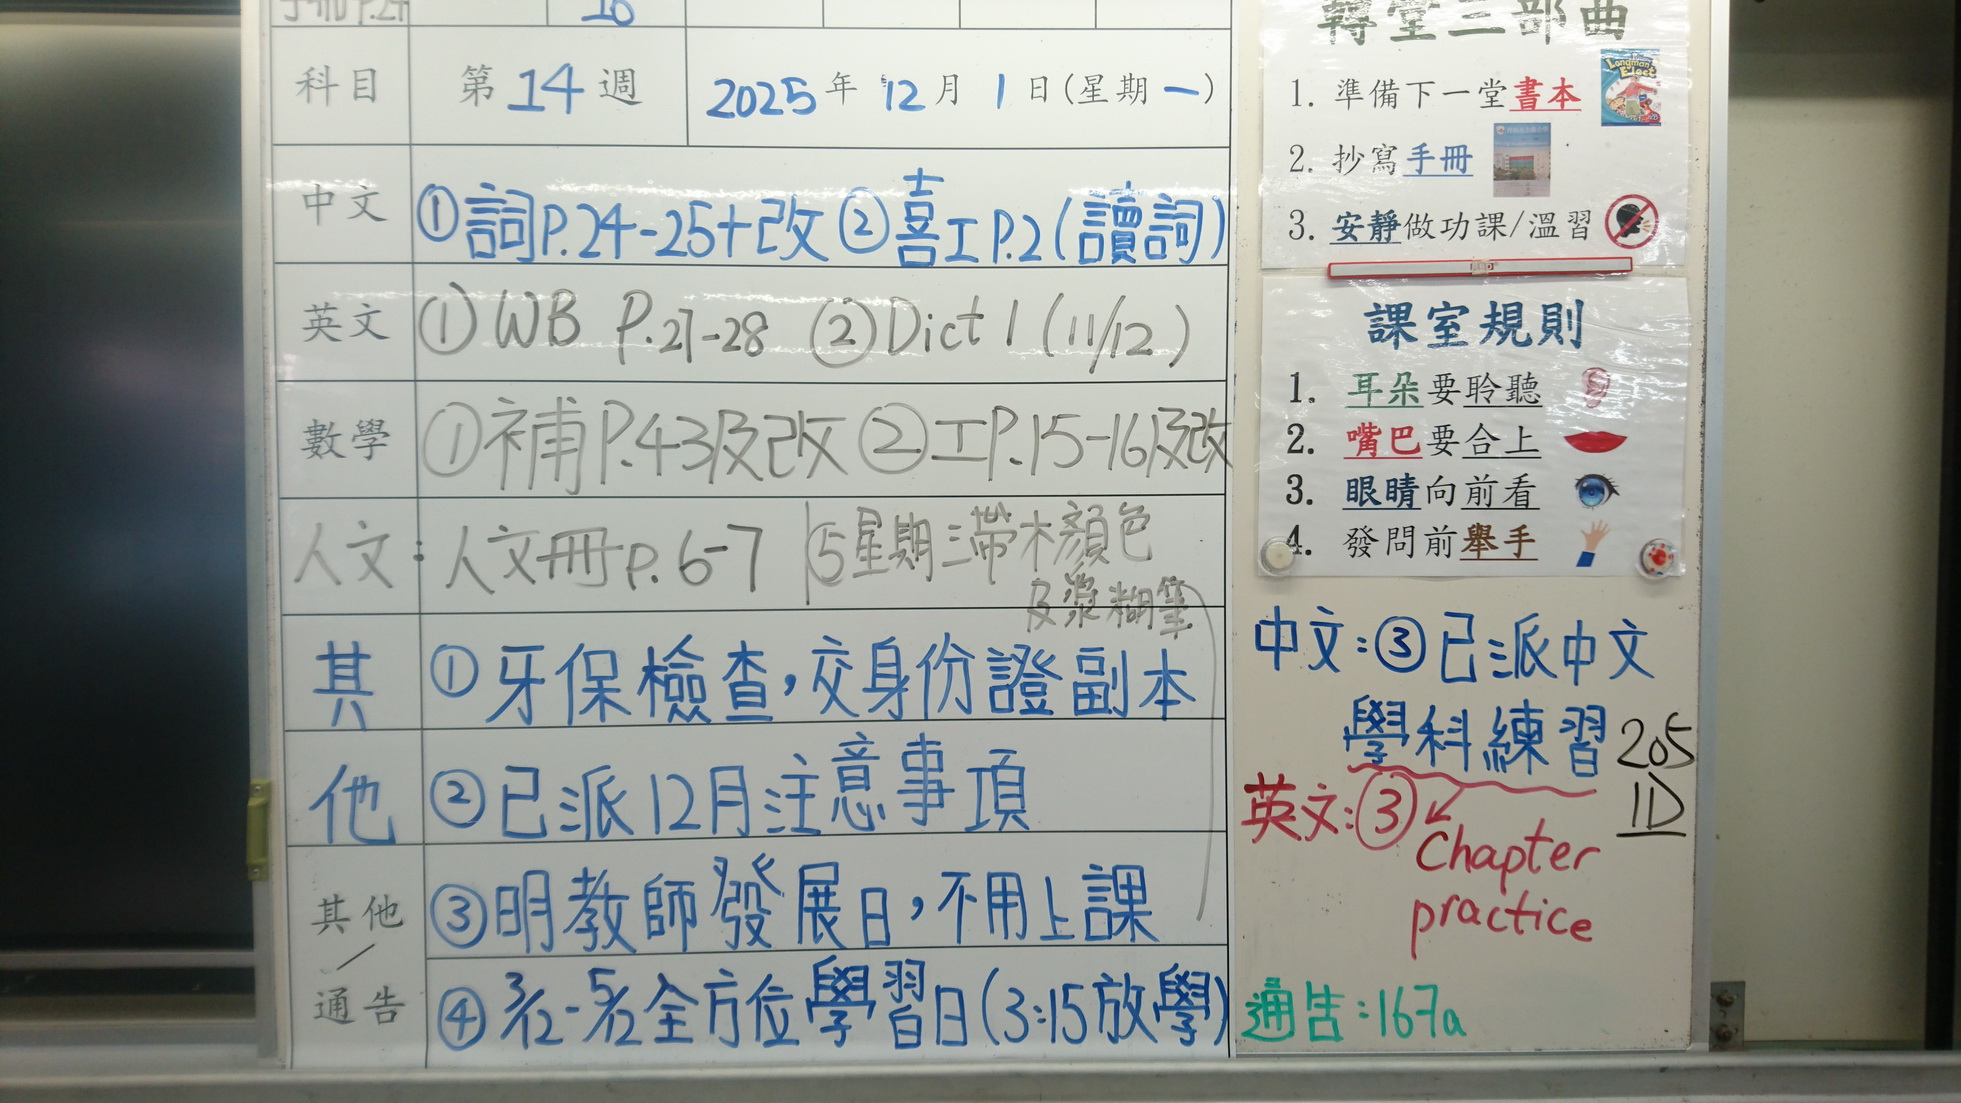 手冊P.21
16
科目 第14週 2025年12月1日(星期一)
中文 ①詞P.24-25+改 ②喜工P.2(讀詞)
英文 ①WB P.27-28 ②Dict 1 (11/12)
數學 ①補P.43及改 ②工P.15-16及改
人文: 人文冊p.6-7 ⑤星期三帶木顏色
及漿糊筆
其 ①牙保檢查,交身份證副本
他 ②已派12月注意事項
其他 ③明教師發展日,不用上課
/
通告 ④3/12-5/12全方位學習日(3:15放學)
轉堂三部曲
1. 準備下一堂書本
Longman Elect
2. 抄寫手冊
3. 安靜做功課/溫習
課室規則
1. 耳朵要聆聽
2. 嘴巴要合上
3. 眼睛向前看
4. 發問前舉手
中文:③已派中文
學科練習 205
1D
英文:③
Chapter
practice
通告:167a